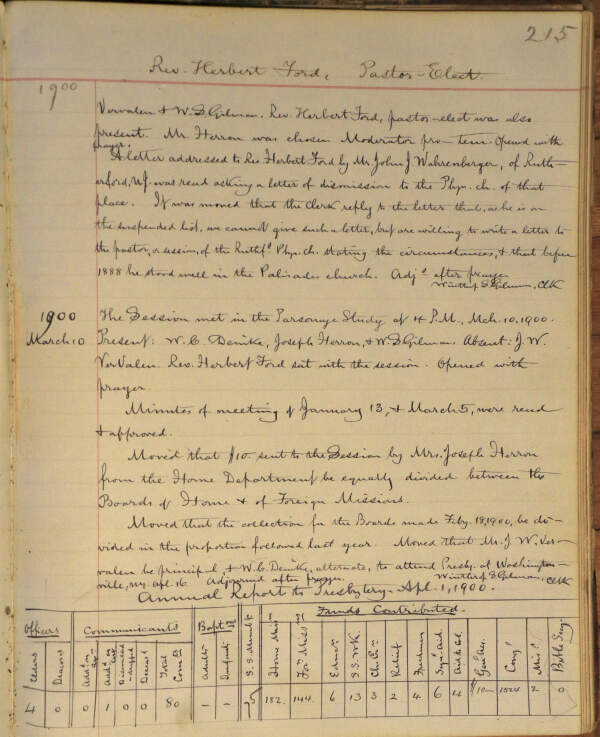 215
Rev. Herbert Ford, Pastor-Elect.
1900
Vervalen & W. S. Gilman. Rev. Herbert Ford, pastor-elect was also
present. Mr. Herron was chosen Moderator pro-tem. Opened with
prayer.
A letter addressed to Rev Herbert Ford by Mr John J Wahrenberger, of Ruth-
erford, N.J. was read asking a letter of dismission to the Phys. ch. of that
place. It was moved that the Clerk reply to the letter that, as he is on
the suspended list, we cannot give such a letter, but are willing to write a letter to
the pastor, or session, of the Ruthfd Phys. ch. stating the circumstances, & that before
1888 he stood well in the Palisades church. Adjd after prayer
Winthrop S Gilman, Clk
1900
March 10
The Session met in the Parsonage Study at 4 P.M., Mch. 10, 1900.
Present: W. C. Denike, Joseph Herron, & W S Gilman. Absent: J. W.
VerValen. Rev. Herbert Ford sat with the session. Opened with
prayer.
Minutes of meeting of January 13, & March 5, were read
& approved.
Moved that $10. sent to the Session by Mrs. Joseph Herron
from the Home Department be equally divided between the
Boards of Home & of Foreign Missions.
Moved that the collection for the Boards made Feby. 18, 1900, be di-
vided in the proportion followed last year. Moved that Mr. J. W. Ver-
valen be principal, & W. C. Denike, alternate, to attend Presby. at Washington-
ville, N.Y. Apl. 16. Adjourned after prayer. Winthrop S Gilman, Clk
Annual Report to Presbytery - Apl. 1, 1900.
Officers Communicants Baptisms Funds Contributed.
Elders Deacons Total Comts Adults Infants S.S. Memb. Home Missn Forn Missn Educn S.S. Wk Ch. Ern Relief Freedmen Syn. Aid Aid to Col. Genl Ass. Congl Misl Bible Socy.
4 0 0 1 0 0 80 - - 182. 144. 6 13 3 2 4 6 12 1824 2 0